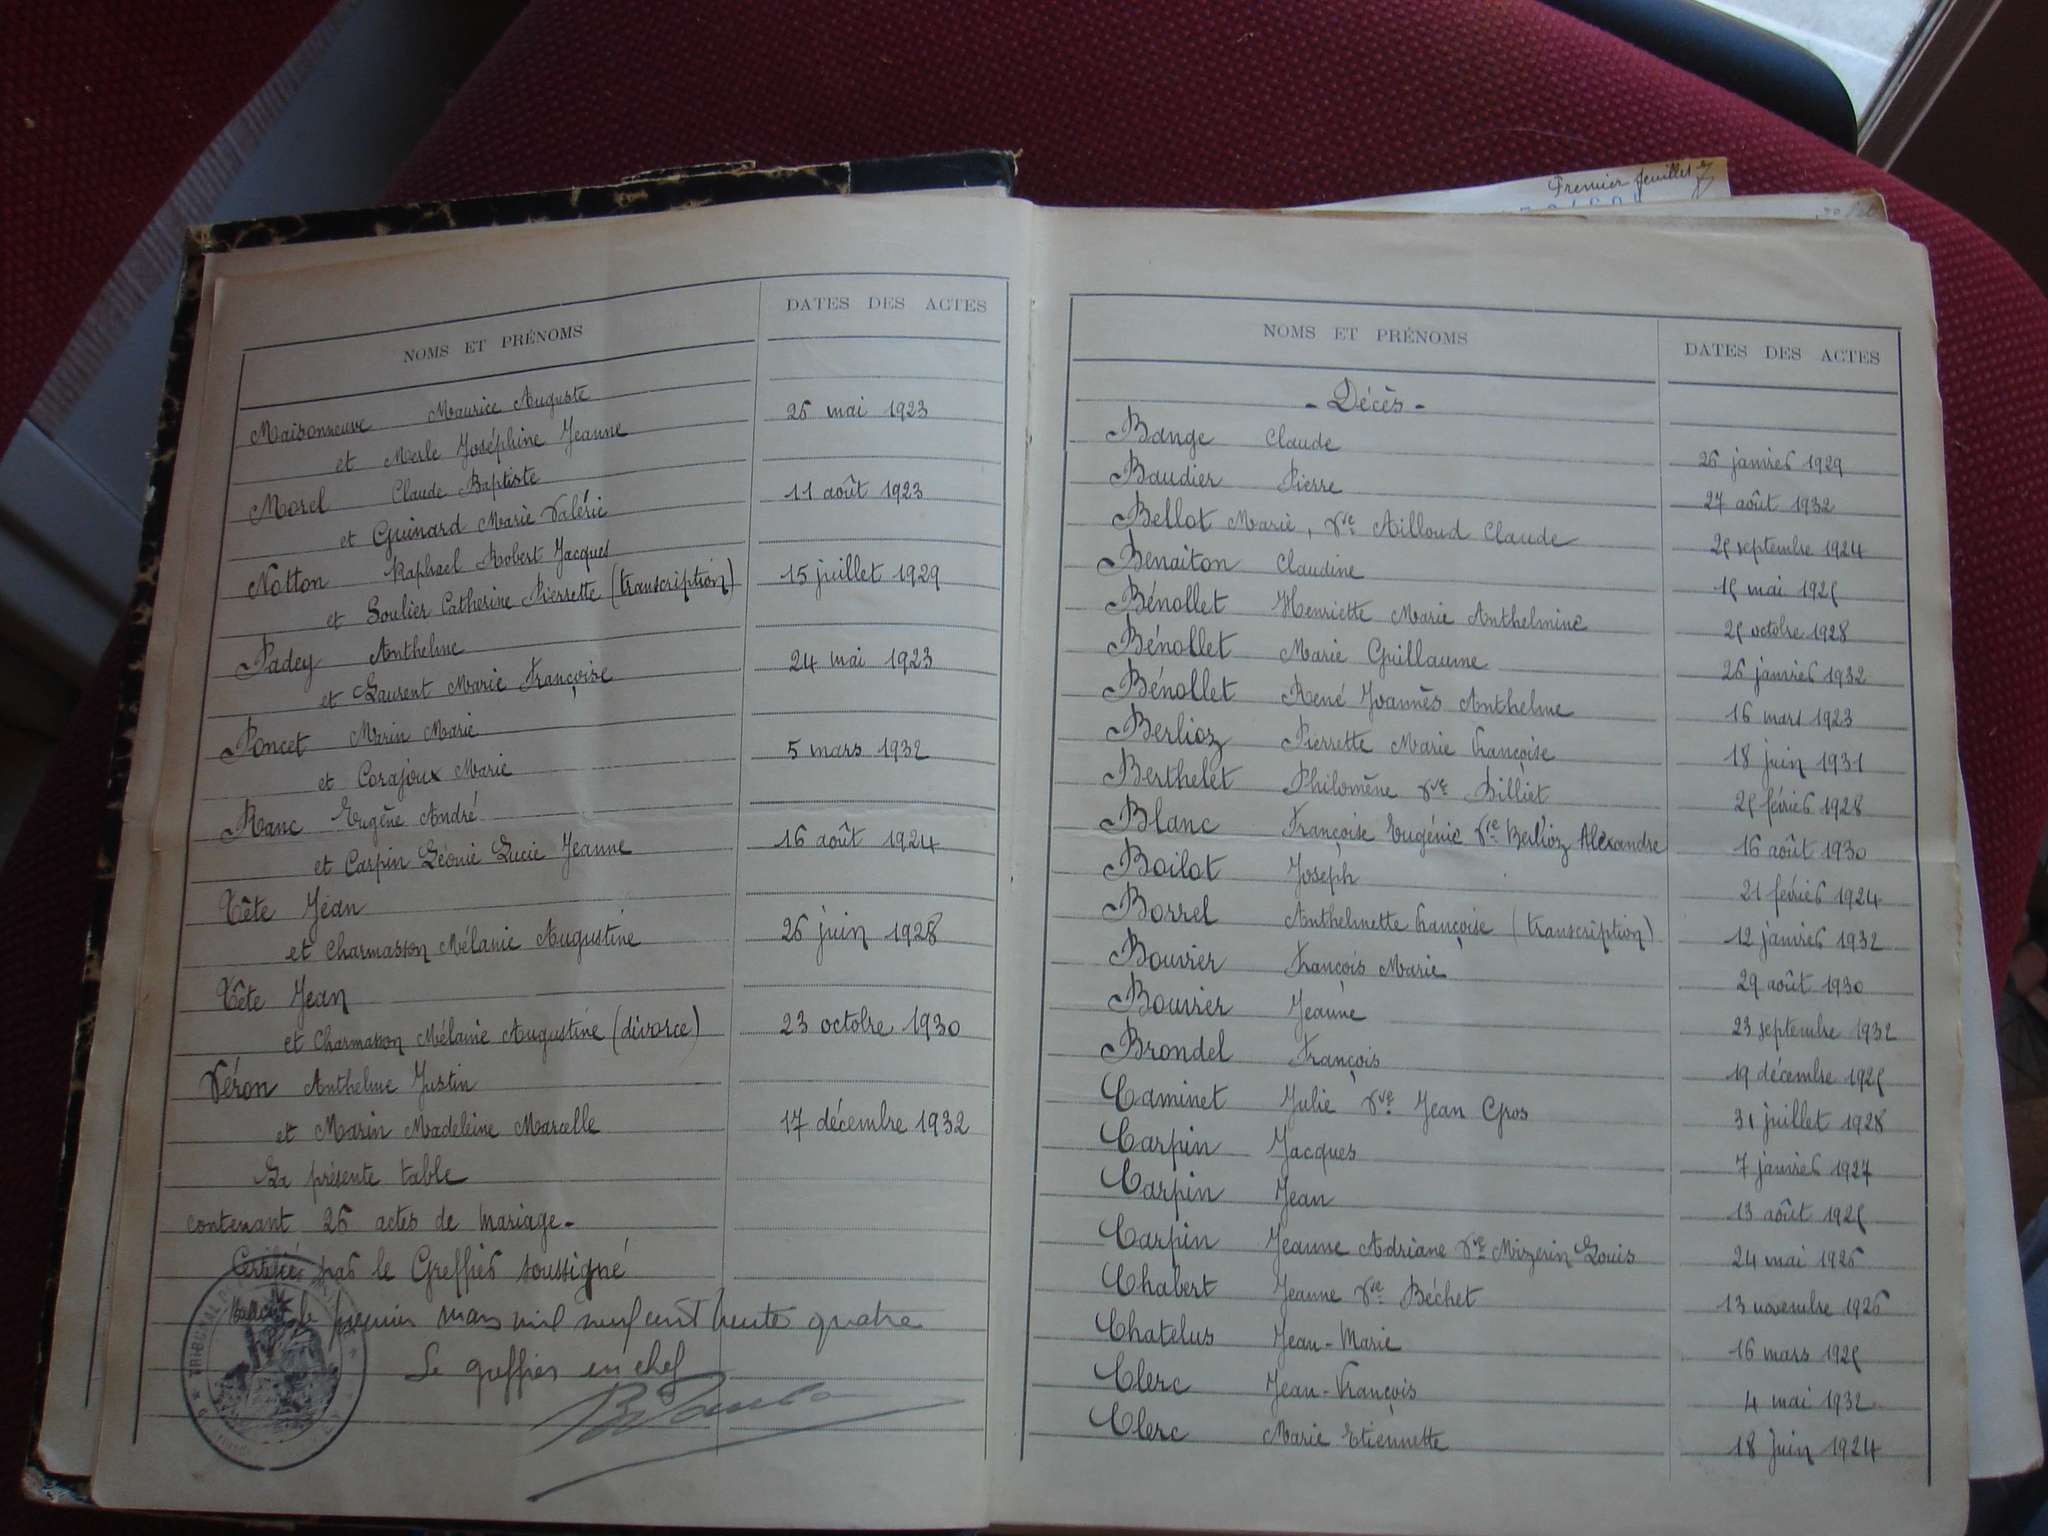 Premier feuillet
NOMS ET PRÉNOMS DATES DES ACTES
Maisonneuve Maurice Auguste
et Merle Joséphine Jeanne 26 mai 1923
Morel Claude Baptiste
et Guinard Marie Valérie 11 août 1923
Notton Raphael Robert Jacques
et Soulier Catherine Pierrette (transcription) 15 juillet 1929
Padey Anthelme
et Laurent Marie Françoise 24 mai 1923
Poncet Marin Marie
et Corajoux Marie 5 mars 1932
Ranc Eugène André
et Carpin Léonie Lucie Jeanne 16 août 1924
Tête Jean
et Charmasson Mélanie Augustine 26 juin 1928
Tête Jean
et Charmasson Mélanie Augustine (divorce) 23 octobre 1930
Véron Anthelme Justin
et Marin Madeleine Marcelle 17 décembre 1932
La présente table
contenant 26 actes de mariage.
Certifiée par le Greffier soussigné
le premier mars mil neuf cent trente quatre
Le greffier en chef
TRIBUNAL
NOMS ET PRÉNOMS DATES DES ACTES
- Décès -
Bange Claude 26 janvier 1929
Baudier Pierre 27 août 1932
Bellot Marie, Vve Ailloud Claude 25 septembre 1924
Benaiton Claudine 15 mai 1925
Bénollet Henriette Marie Anthelmine 25 octobre 1928
Bénollet Marie Guillaume 26 janvier 1932
Bénollet René Joannès Anthelme 16 mars 1923
Berlioz Pierrette Marie Françoise 18 juin 1931
Berthelet Philomène Vve Billiet 25 février 1928
Blanc Françoise Eugénie Vve Berlioz Alexandre 16 août 1930
Boilot Joseph 21 février 1924
Borrel Anthelmette Françoise (transcription) 12 janvier 1932
Bouvier François Marie 29 août 1930
Bouvier Jeanne 23 septembre 1932
Brondel François 19 décembre 1925
Caminet Julie Vve Jean Gros 31 juillet 1928
Carpin Jacques 7 janvier 1927
Carpin Jean 13 août 1925
Carpin Jeanne Adriane Vve Mizerin Louis 24 mai 1926
Chabert Jeanne Vve Béchet 13 novembre 1926
Chatelus Jean-Marie 16 mars 1925
Clerc Jean-François 4 mai 1932
Clerc Marie Etiennette 18 Juin 1924